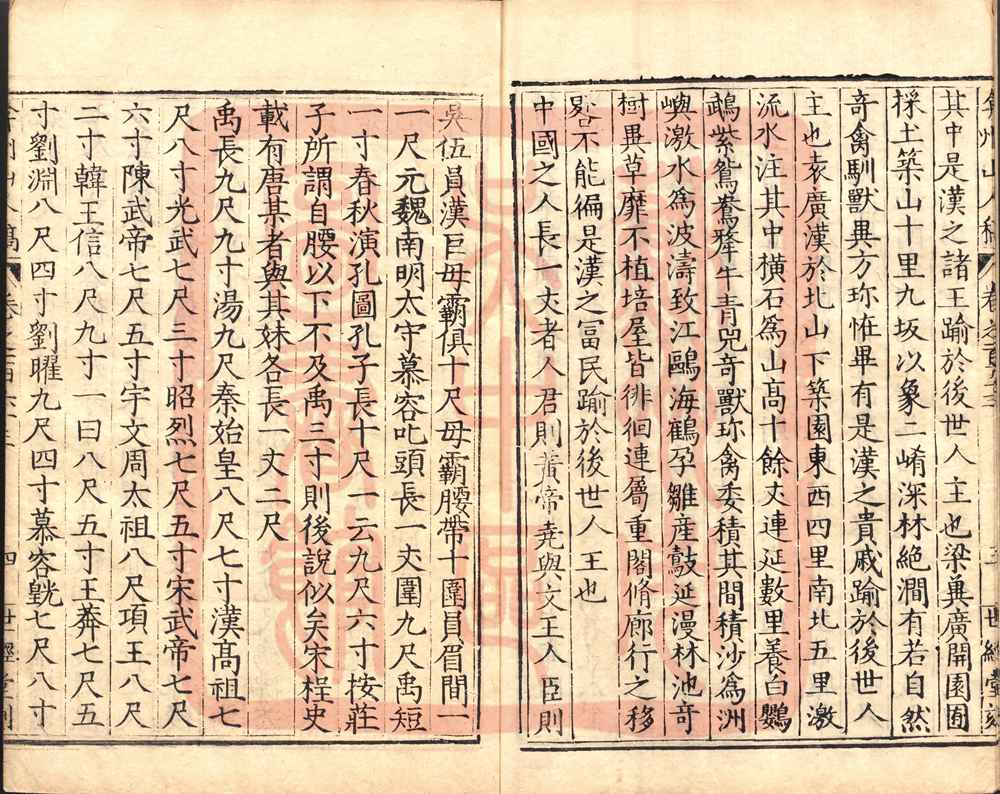 弇州山人稿 卷之一百
世經堂刻
其中是漢之諸王踰於後世人主也梁冀廣開園囿
採土築山十里九坂以象二崤深林絶澗有若自然
奇禽馴獸異方珎恠畢有是漢之貴戚踰於後世人
主也袁廣漢於北山下築園東西四里南北五里激
流水注其中橫石爲山高十餘丈連延數里養白鸚
鵡紫鴛鴦犛牛青兕奇獸珎禽委積其間積沙爲洲
嶼激水爲波濤致江鷗海鶴孕雛産鷇延漫林池奇
樹異草靡不植培屋皆徘徊連屬重閣脩廊行之移
晷不能徧是漢之富民踰於後世人王也
中國之人長一丈者人君則黃帝堯與文王人臣則
吳伍員漢巨毋霸俱十尺毋霸腰帶十圍員眉間一
一尺元魏南明太守慕容叱頭長一丈圍九尺禹短
一寸春秋演孔圖孔子長十尺一云九尺六寸按莊
子所謂自腰以下不及禹三寸則後說似矣宋桯史
載有唐某者與其妹各長一丈二尺
禹長九尺九寸湯九尺秦始皇八尺七寸漢高祖七
尺八寸光武七尺三寸昭烈七尺五寸宋武帝七尺
六寸陳武帝七尺五寸宇文周太祖八尺項王八尺
二寸韓王信八尺九寸一曰八尺五寸王莽七尺五
寸劉淵八尺四寸劉曜九尺四寸慕容皝七尺八寸
四 世經堂刻